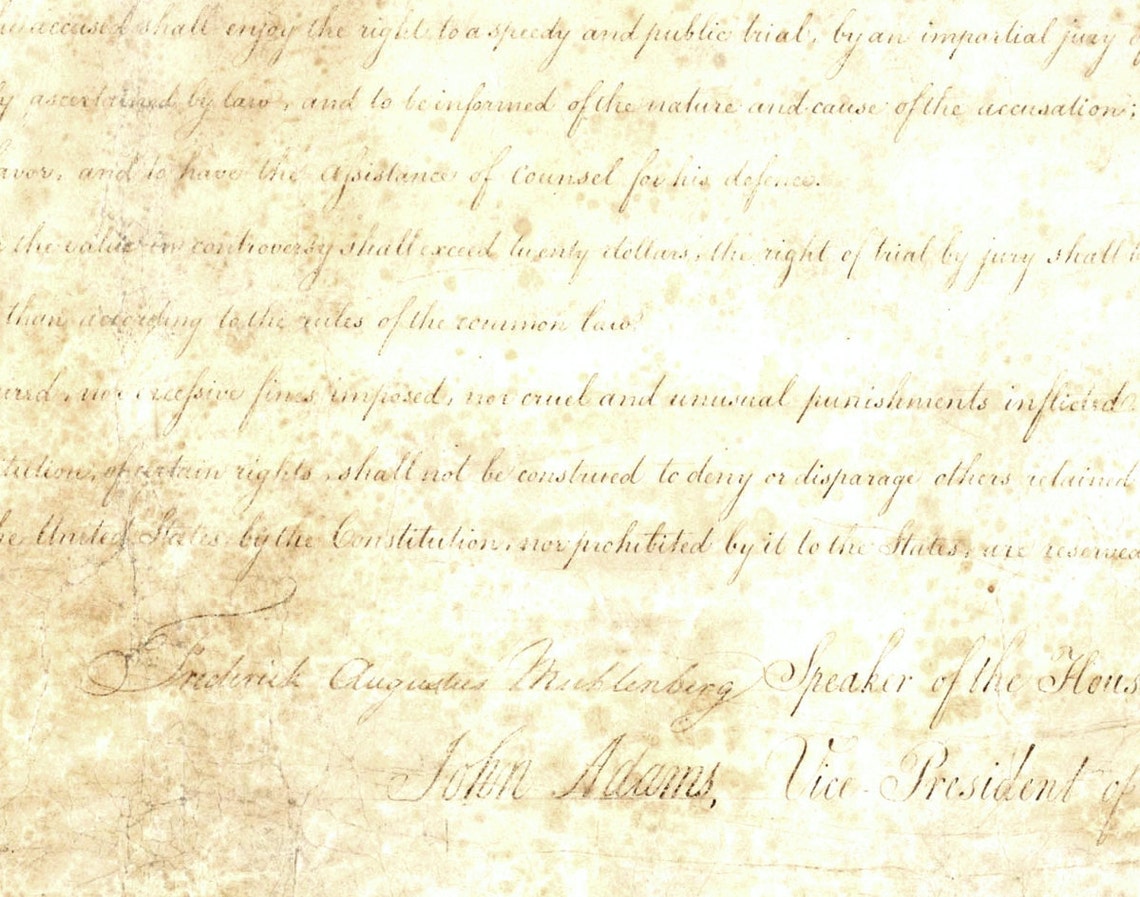 accused shall enjoy the right to a speedy and public trial, by an impartial jury of
ascertained by law, and to be informed of the nature and cause of the accusation;
favor, and to have the assistance of counsel for his defence.
the value in controversy shall exceed twenty dollars, the right of trial by jury shall
than according to the rules of the common law.
nor excessive fines imposed, nor cruel and unusual punishments inflicted.
of certain rights, shall not be construed to deny or disparage others retained
United States by the Constitution, nor prohibited by it to the States, are reserved
Frederick Augustus Muhlenberg Speaker of the Hous
John Adams, Vice-President of